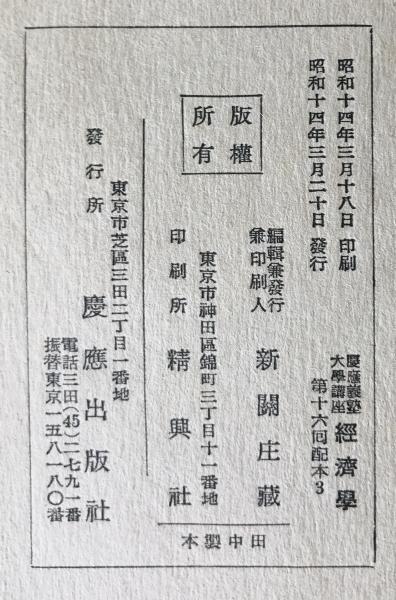 昭和十四年三月十八日 印刷
昭和十四年三月二十日 發行
慶應義塾
大學講座
經濟學
第十六囘配本3
版權
所有
編輯兼發行
兼印刷人
新關庄藏
東京市神田區錦町三丁目十一番地
印刷所 精興社
東京市芝區三田二丁目一番地
發行所 慶應出版社
電話三田(45)二七九一番
振替東京一五八一八〇番
本製中田